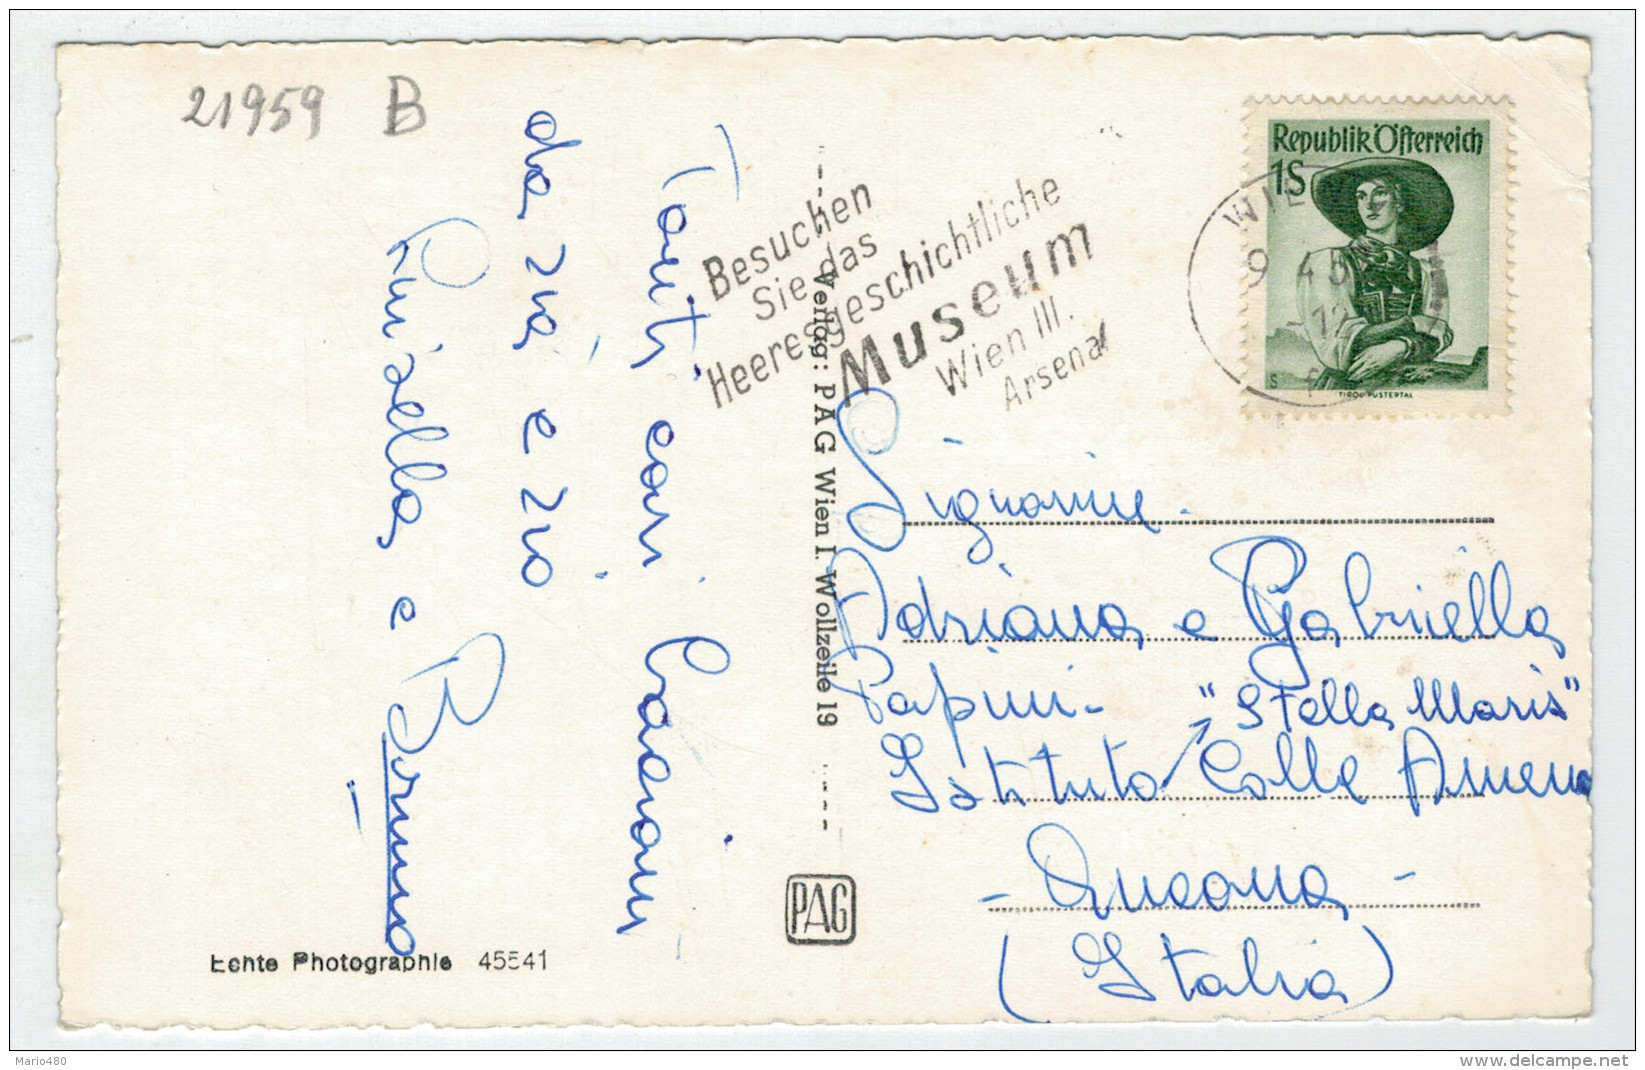 21959 B
Tanti cari bacioni
da zia e zio
Luisella e
Bruno
Echte Photographie 45541
Verlag: PAG Wien I. Wollzeile 19
PAG
Besuchen
Sie das
Heeresgeschichtliche
Museum
Wien III.
Arsenal
Republik Österreich
1S
WIE
9
TIROL PUSTERTAL
Signorine
Adriana e Gabriella
Papini - "Stella Maris"
Istituto Colle Ameno
- Ancona -
(Italia)
Mario480
delcampe.net